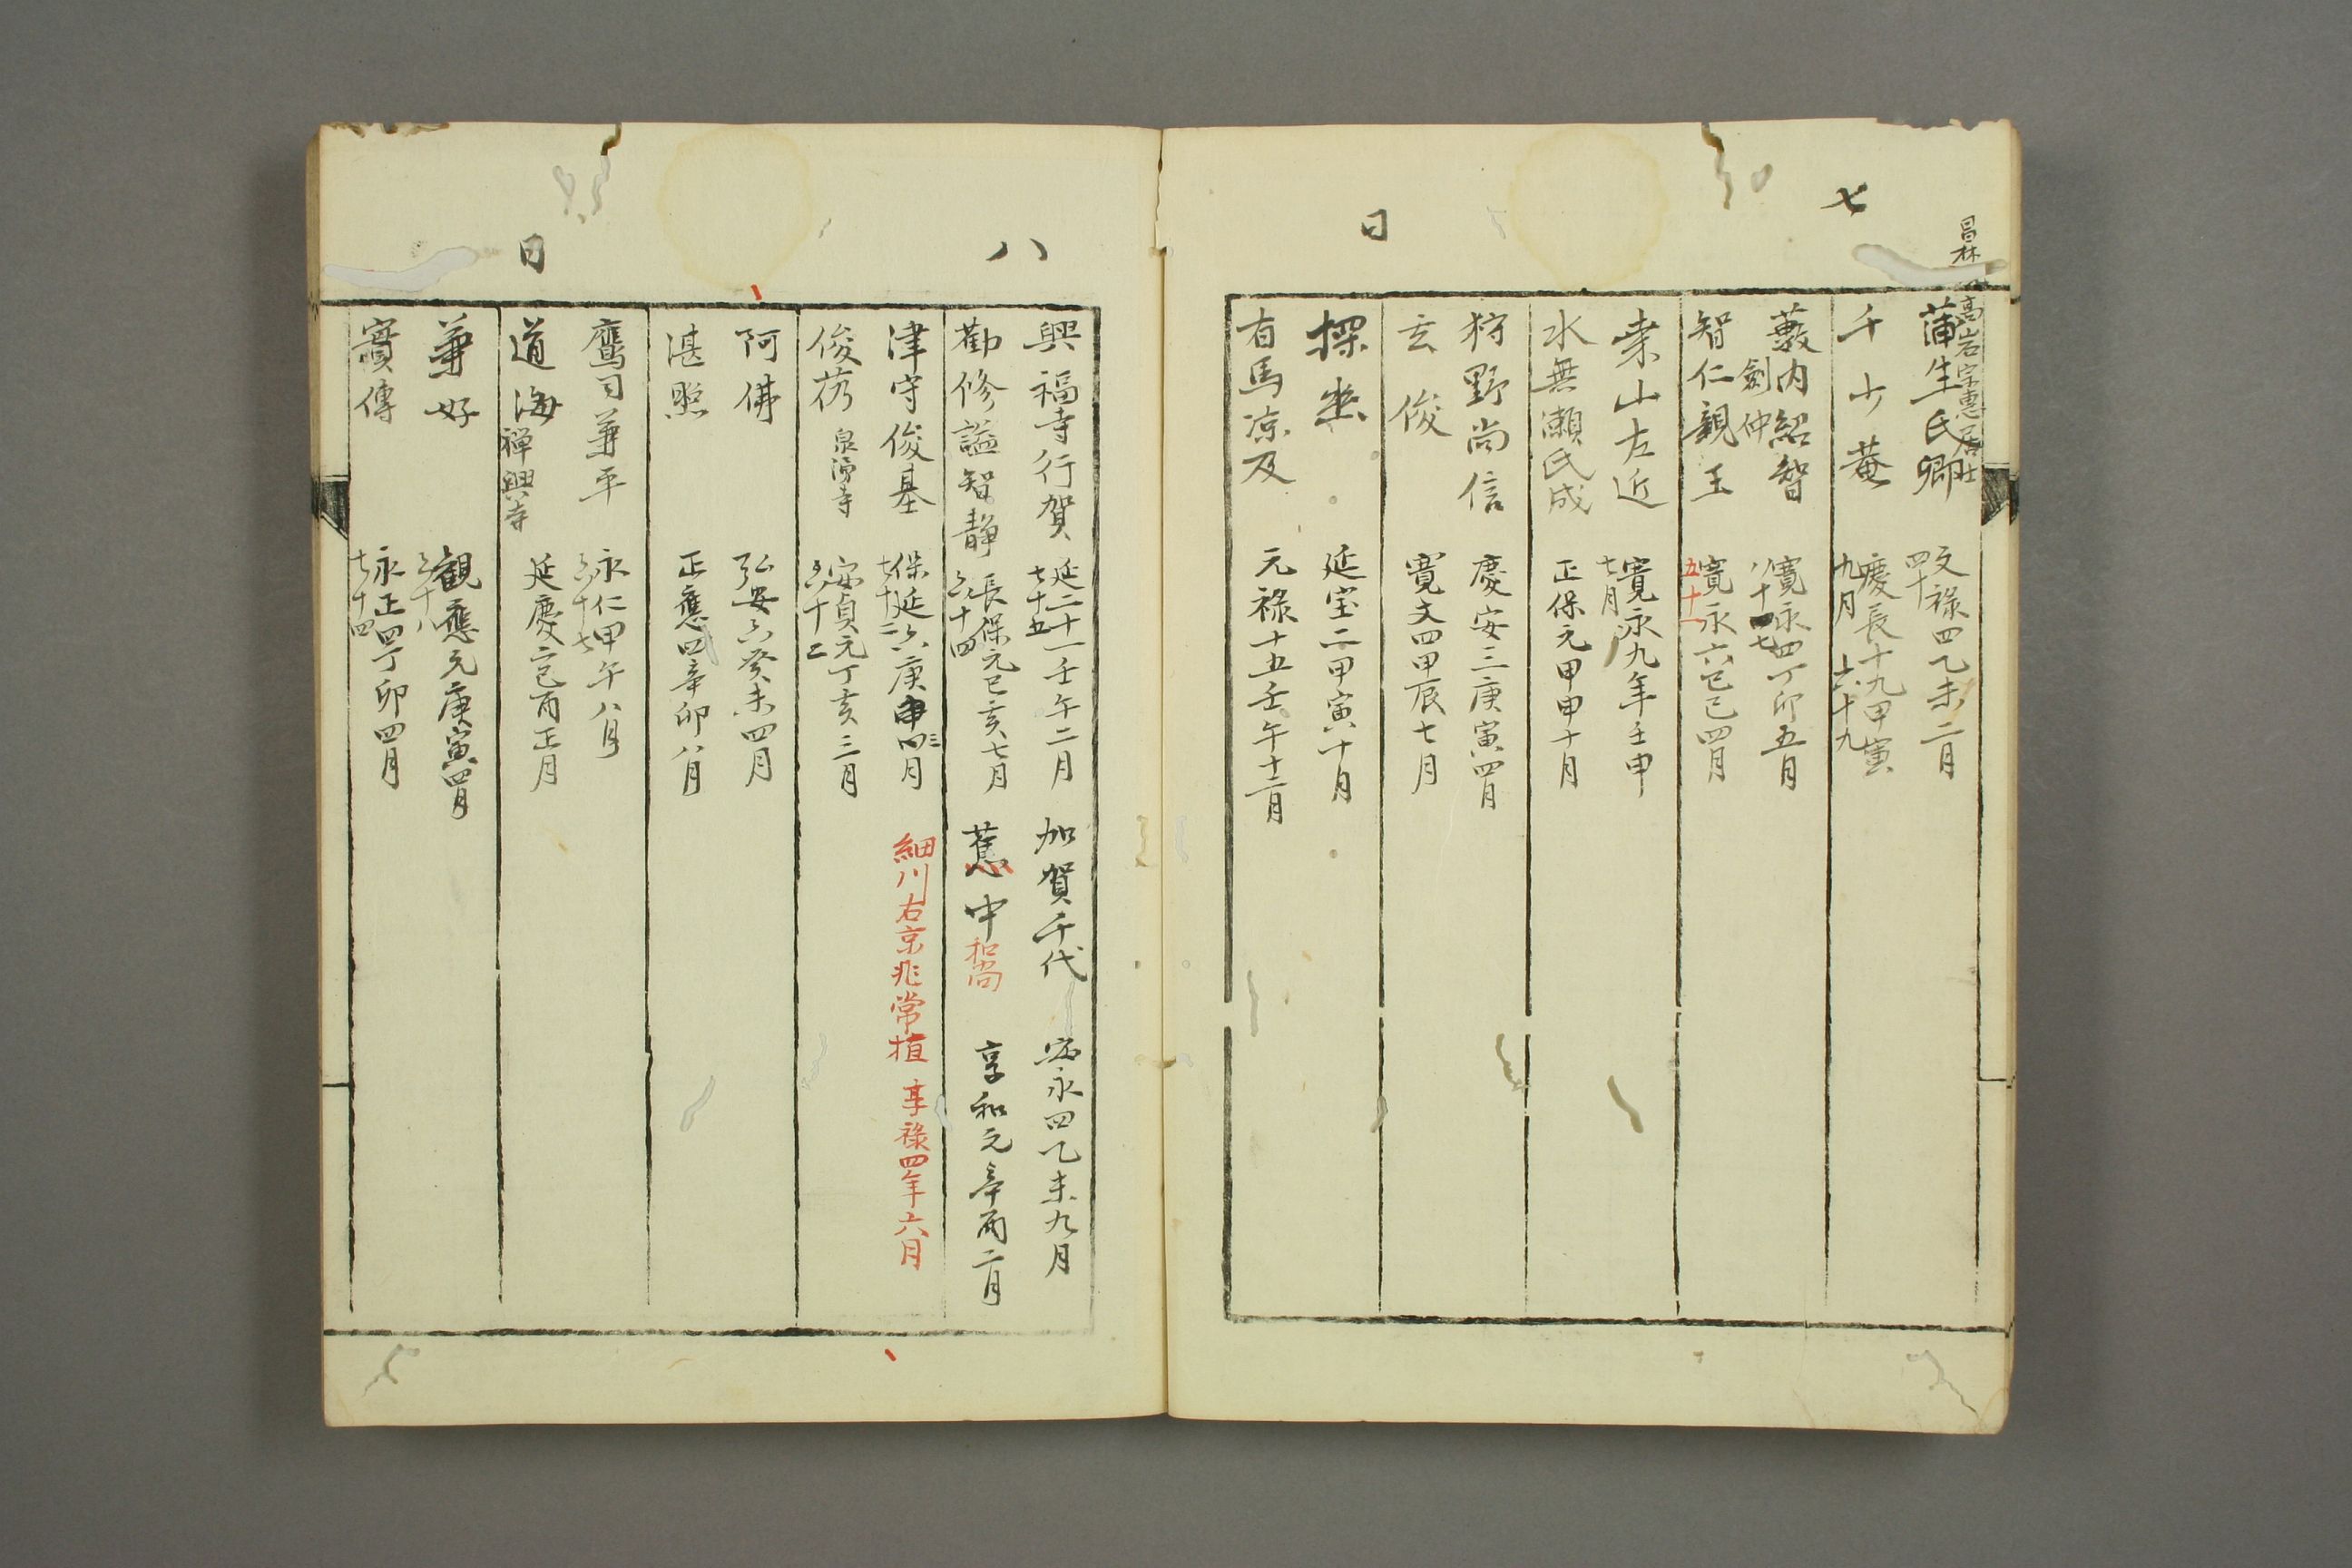 七
日
昌林
高岩宗忠居士
蒲生氏郷 文禄四乙未二月
四十
千少菴 慶長十九甲寅
九月 六十九
藪内紹智 寛永四丁卯五月
劍仲 八十七
智仁親王 寛永六己巳四月
五十一
柴山左近 寛永九年壬申
七月
水無瀬氏成 正保元甲申十月
狩野尚信 慶安三庚寅四月
玄俊 寛文四甲辰七月
探 延宝二甲寅十月
有馬凉及 元禄十五壬午十二月
八
日
興福寺行賀 延二十一壬午二月
七十五
加賀千代 安永四乙未九月
勸修諡智静 長保元己亥七月
六十四
蕉中和尚 享和元辛酉二月
津守俊基 保延六庚申四月
三
七十二
細川右京兆常植 享禄四年六月
俊芿 泉涌寺 安貞元丁亥三月
六十二
阿佛 弘安六癸未四月
湛照 正應四辛卯八月
鷹司兼平 永仁甲午八月
六十七
道海 禅興寺 延慶二己酉正月
兼好 觀應元庚寅四月
六十八
實傳 永正四丁卯四月
七十四